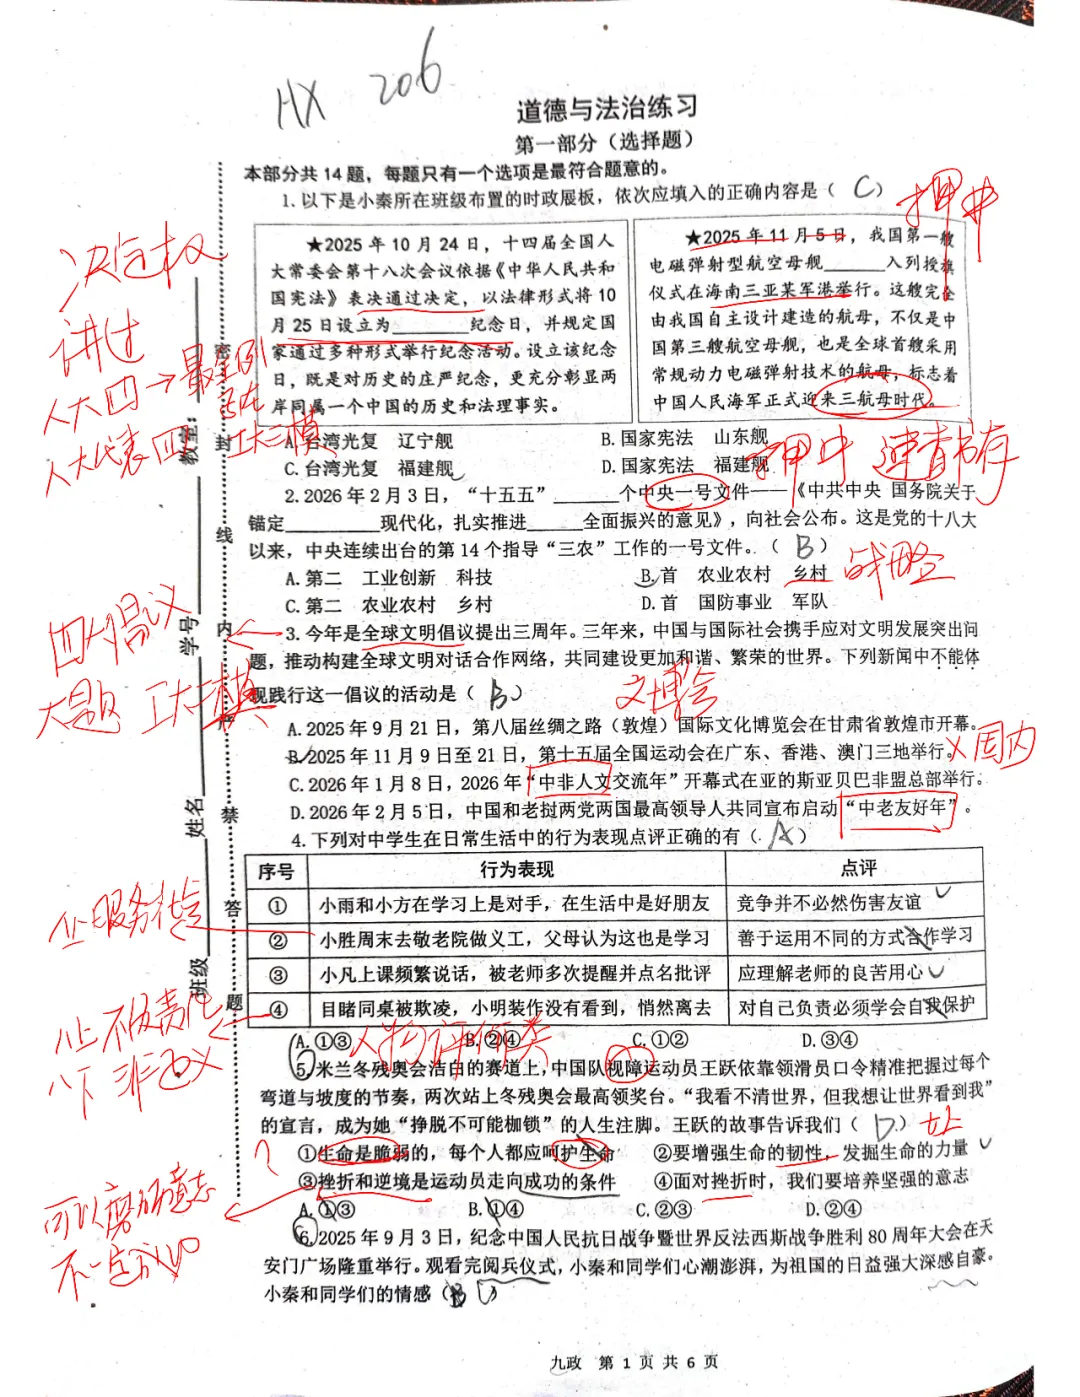 HX 206
道德与法治练习
第一部分（选择题）
本部分共14题，每题只有一个选项是最符合题意的。
1.以下是小秦所在班级布置的时政展板，依次应填入的正确内容是（ C ）
押中
★2025年10月24日，十四届全国人
大常委会第十八次会议依据《中华人民共和
国宪法》表决通过决定，以法律形式将10
月25日设立为______纪念日，并规定国
家通过多种形式举行纪念活动。设立该纪念
日，既是对历史的庄严纪念，更充分彰显两
岸同属一个中国的历史和法理事实。
★2025年11月5日，我国第一艘
电磁弹射型航空母舰______入列授旗
仪式在海南三亚某军港举行。这艘完全
由我国自主设计建造的航母，不仅是中
国第三艘航空母舰，也是全球首艘采用
常规动力电磁弹射技术的航母，标志着
中国人民海军正式迎来三航母时代。
决定权
讲过
人大四→最
人大代表四
A.台湾光复 辽宁舰 B.国家宪法 山东舰
C.台湾光复 福建舰 D.国家宪法 福建舰
押中
2.2026年2月3日，“十五五”______个中央一号文件——《中共中央 国务院关于
锚定________现代化，扎实推进_____全面振兴的意见》，向社会公布。这是党的十八大
以来，中央连续出台的第14个指导“三农”工作的一号文件。（ B ）
A.第二 工业创新 科技 B.首 农业农村 乡村 战略
C.第二 农业农村 乡村 D.首 国防事业 军队
四大倡议
大题
3.今年是全球文明倡议提出三周年。三年来，中国与国际社会携手应对文明发展突出问
题，推动构建全球文明对话合作网络，共同建设更加和谐、繁荣的世界。下列新闻中不能体
现践行这一倡议的活动是（ B ）
文博会
A.2025年9月21日，第八届丝绸之路（敦煌）国际文化博览会在甘肃省敦煌市开幕。
B.2025年11月9日至21日，第十五届全国运动会在广东、香港、澳门三地举行。 ×国内
C.2026年1月8日，2026年“中非人文交流年”开幕式在亚的斯亚贝巴非盟总部举行。
D.2026年2月5日，中国和老挝两党两国最高领导人共同宣布启动“中老友好年”。
4.下列对中学生在日常生活中的行为表现点评正确的有（ A ）
序号 行为表现 点评
① 小雨和小方在学习上是对手，在生活中是好朋友 竞争并不必然伤害友谊
② 小胜周末去敬老院做义工，父母认为这也是学习 善于运用不同的方式合作学习
③ 小凡上课频繁说话，被老师多次提醒并点名批评 应理解老师的良苦用心
④ 目睹同桌被欺凌，小明装作没有看到，悄然离去 对自己负责必须学会自我保护
A.①③ B.②④ C.①② D.③④
八上不负责任
八下非正义
人物评价类
5.米兰冬残奥会洁白的赛道上，中国队视障运动员王跃依靠领滑员口令精准把握过每个
弯道与坡度的节奏，两次站上冬残奥会最高领奖台。“我看不清世界，但我想让世界看到我”
的宣言，成为她“挣脱不可能枷锁”的人生注脚。王跃的故事告诉我们（ D ） 七上
①生命是脆弱的，每个人都应呵护生命 ②要增强生命的韧性，发掘生命的力量
③挫折和逆境是运动员走向成功的条件 ④面对挫折时，我们要培养坚强的意志
A.①③ B.①④ C.②③ D.②④
可以磨砺意志
不一定成功
6.2025年9月3日，纪念中国人民抗日战争暨世界反法西斯战争胜利80周年大会在天
安门广场隆重举行。观看完阅兵仪式，小秦和同学们心潮澎湃，为祖国的日益强大深感自豪。
小秦和同学们的情感（ D ）
九政 第1页共6页
密
封
线
内
严
禁
答
题
教室：
学号
姓名
班级